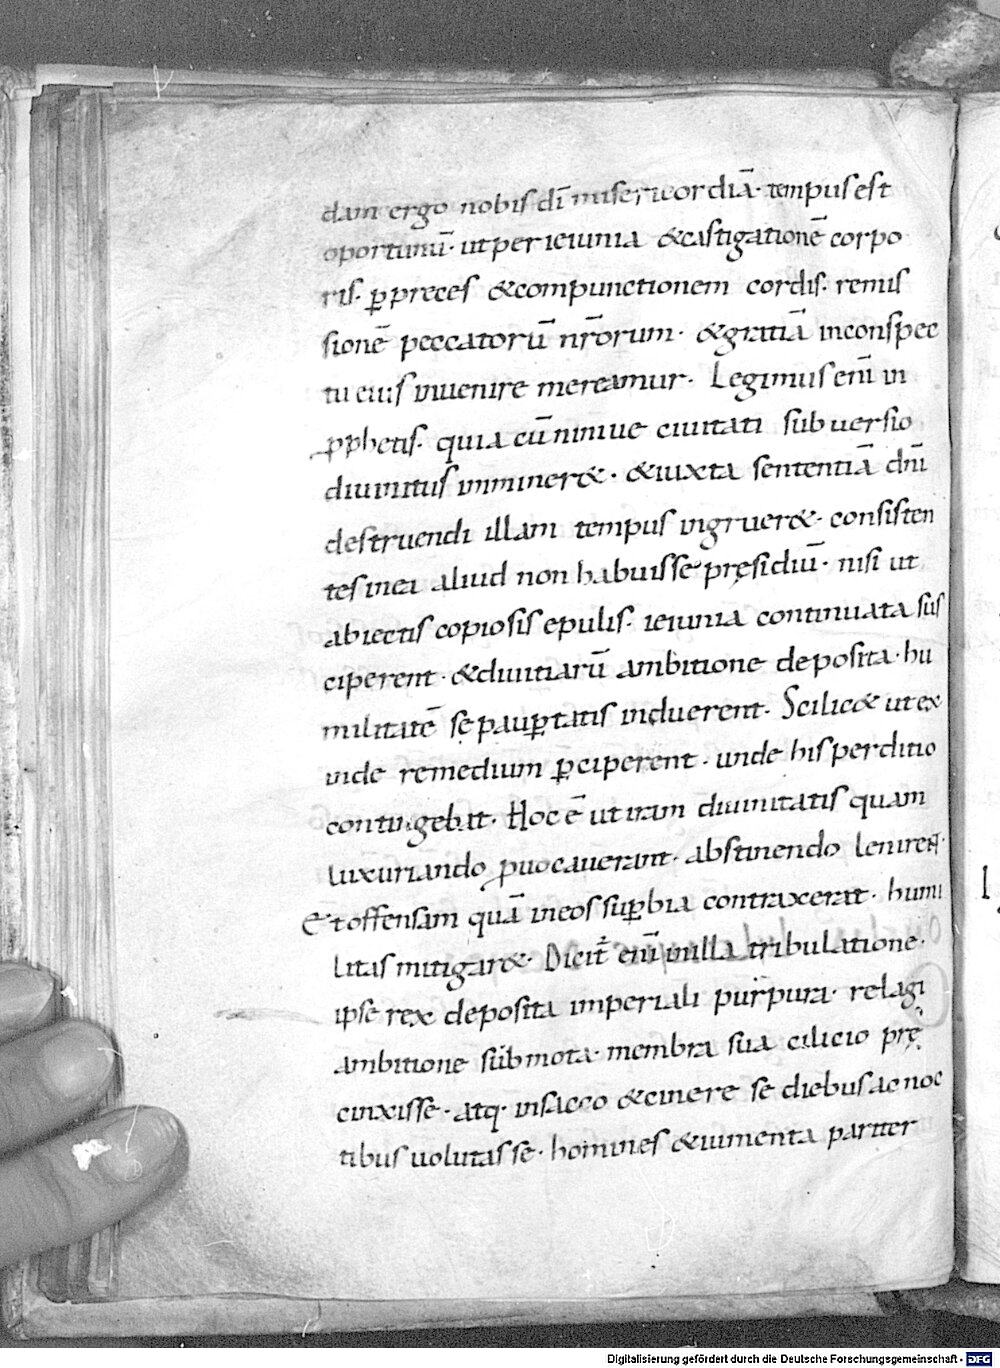 dam ergo nobis dī misericordiā· tempus est
oportunū· ut per ieiunia &castigationē corpo
ris· ꝑ preces &compunctionem cordis· remis
sionē peccatorū nr̄orum· &gratiā inconspec
tu eius inuenire mereamur· Legimus eni̅ in
ꝓphetis· quia cū niniue ciuitati subuersio
diuinitus inminer&· &iuxta sententiā dn̄i
destruendi illam tempus ingruer&· consisten
tes inea aliud non habuisse pręsidiū· nisi ut
abiectis copiosis epulis· ieiunia continuata sus
ciperent· &diuitiarū ambitione deposita· hu
militatē sę pauꝑtatis induerent· Scilic& ut ex
inde remedium ꝑciperent· unde his perditio
contingebat· Hoc ē ut iram diuinitatis quam
luxuriando ꝓuocauerant· abstinendo lenirent·
Et offensam quā ineos suꝑbia contraxerat· humi
litas mitigar&· Dicit̄ enī inilla tribulatione·
ipse rex deposita imperiali purpura· relagi
ambitione submota· membra sua cilicio prę
cinxisse· atq· insacco &cinere se diebus ac noc
tibus uolutasse· homines &iumenta pariter
Digitalisierung gefördert durch die Deutsche Forschungsgemeinschaft - DFG